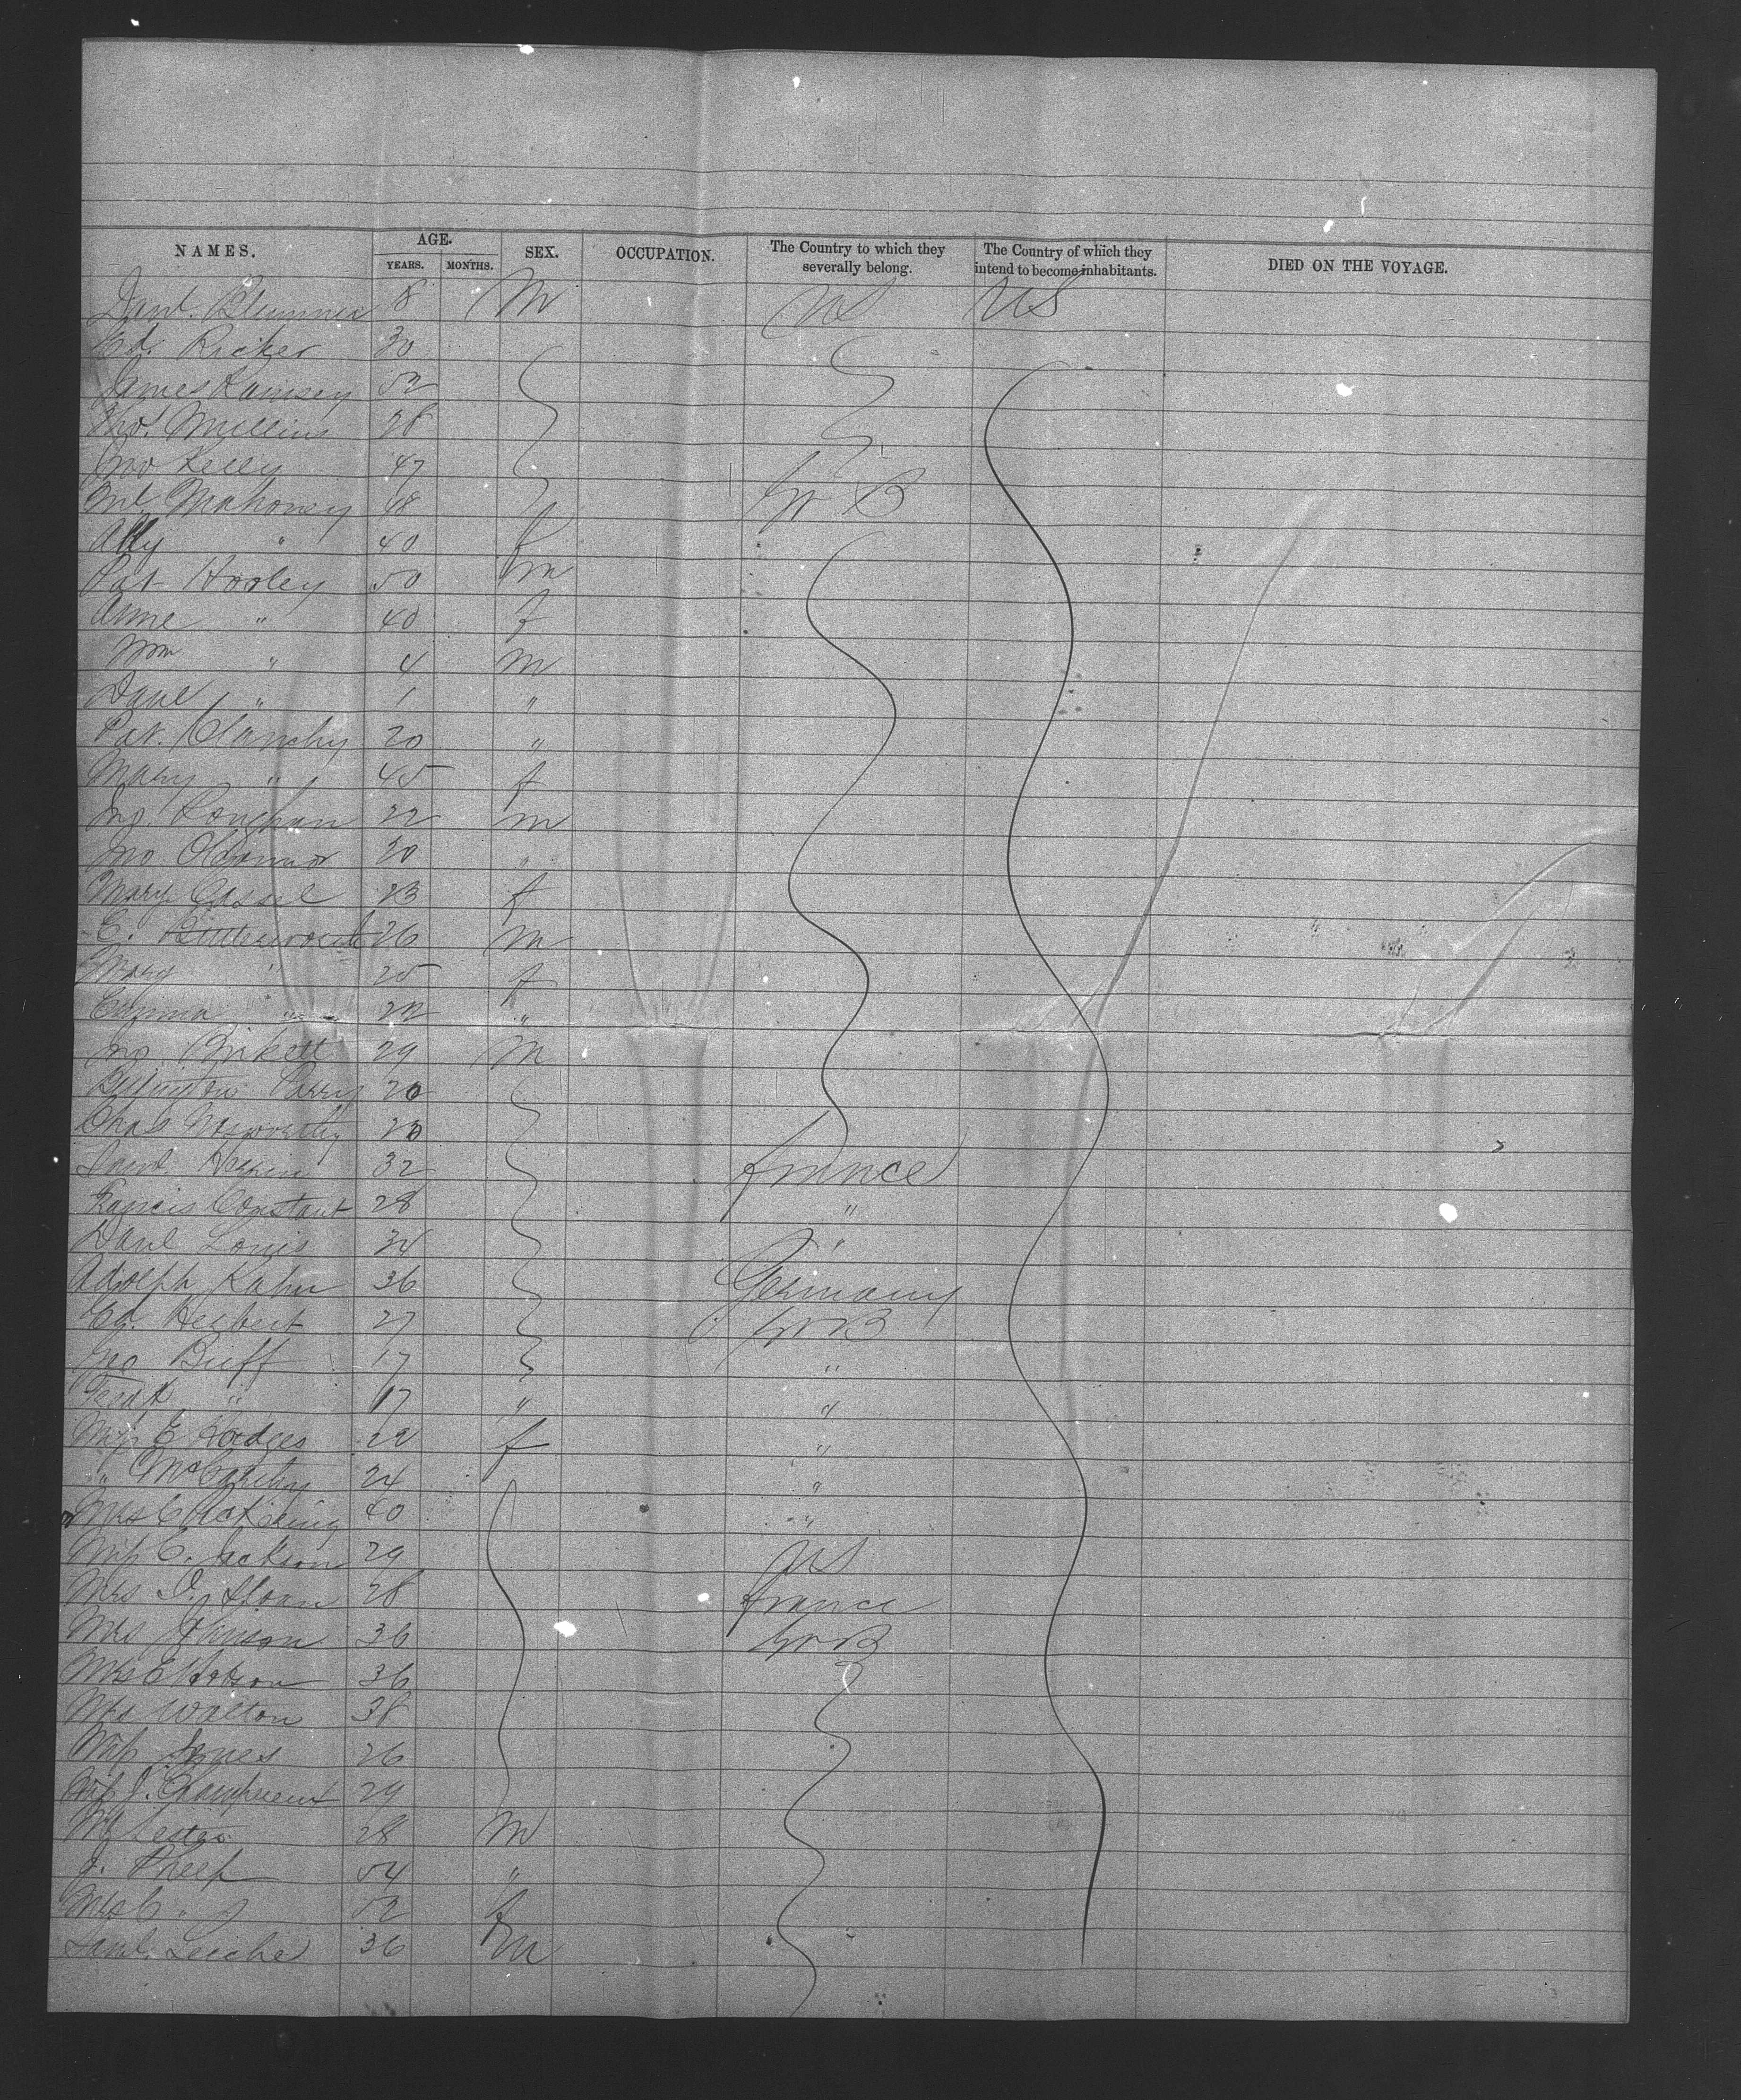 NAMES. AGE. YEARS. MONTHS. SEX. OCCUPATION. The Country to which they severally belong. The Country of which they intend to become inhabitants. DIED ON THE VOYAGE.
8 M US US
Ed. Ricker 30
James Ramsey 52
Tho. Mullins 28
Jno Kelly 47 Gr B
Mahoney 48
Ally " 40 f
Pat Hooley 50 m
Anne " 40 f
Wm " 4 m
Danl " 1 "
Pat. Clanchy 20 "
Mary " 45 f
Jno. 22 m
Jno OConnor 20 "
Mary Cassel 23 f
E. Butterworth 26 m
Mary " 25 f
Emma " 22 "
Jno. Birkett 29 M
Parry 20
Chas 20
32 France
Francis Constant 28 "
Danl Louis 34 "
Adolph Kahn 36 Germany
Ed. Herbert 27 Gr B
Jno Buff 17 "
" 17 " "
Miss E Hodges 22 f "
" McCarthy 24 "
Mrs C Pickering 40 "
Miss E. Jackson 29 US
Mrs Sloan 28 France
Mrs 36 Gr B
Mrs E Hobson 36
Mrs Walton 38
Miss Jones 26
Miss J. 29
Lester 28 M
J. 54 "
Mrs C. " 52 f
Saml. Leiche 36 m